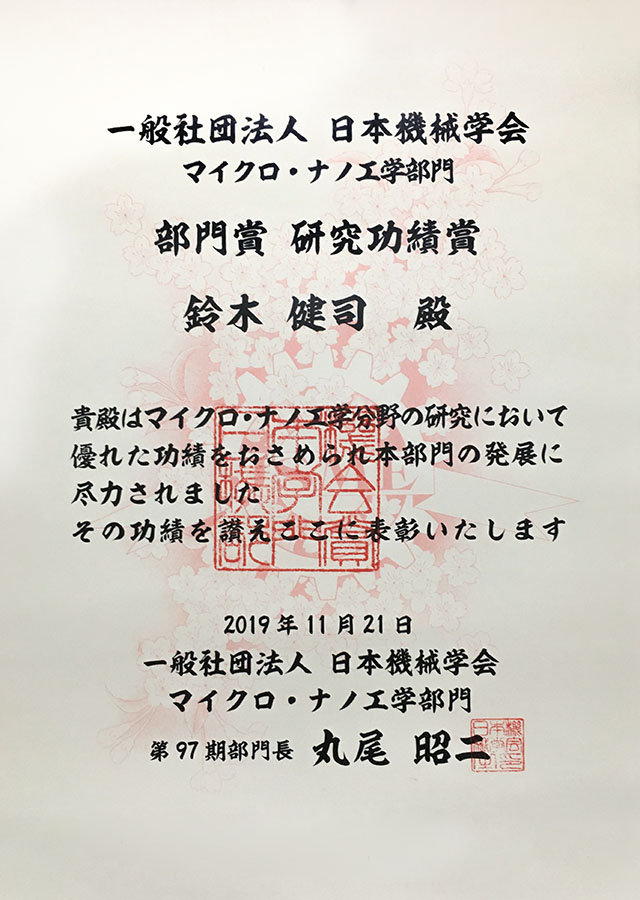 一般社団法人 日本機械学会
マイクロ・ナノ工学部門
部門賞 研究功績賞
鈴木 健司 殿
貴殿はマイクロ・ナノ工学分野の研究において
優れた功績をおさめられ本部門の発展に
尽力されました
その功績を讃えここに表彰いたします
2019年11月21日
一般社団法人 日本機械学会
マイクロ・ナノ工学部門
第97期部門長 丸尾 昭二